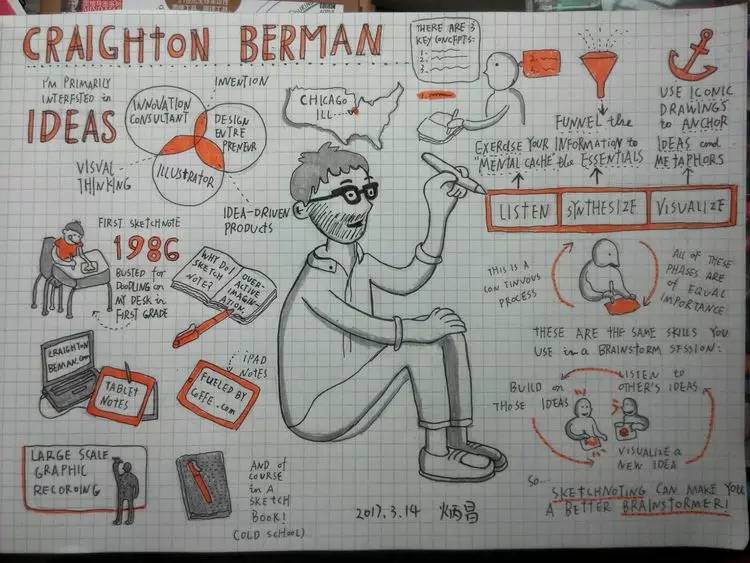 CRAIGHTON BERMAN
I'M PRIMARILY
INTERESTED in
IDEAS
INVENTION
INNOVATION
CONSULTANT
DESIGN
ENTRE
PRENEUR
ILLUSTRATOR
VISUAL
THINKING
IDEA-DRIVEN
PRODUCTS
CHICAGO
ILL.
FIRST SKETCHNOTE
1986
BUSTED for
DOODLING on
MY DESK in
FIRST GRADE
WHY DO I
SKETCH
NOTE?
OVER-
ACTIVE
IMAGIN-
ATION.
CRAIGHTON
BEMAN.com
TABLET
NOTES
iPAD
NOTES
FUELED BY
COFFE.com
LARGE SCALE
GRAPHIC
RECORDING
AND of
COURSE
in A
SKETCH
BOOK!
(OLD SCHOOL)
2017.3.14 炳昌
THERE ARE 3
KEY CONCEPTS:
1.
2.
3.
EXERCISE YOUR
"MENTAL CACHE"
FUNNEL the
INFORMATION to
the ESSENTIALS
USE ICONIC
DRAWINGS
to ANCHOR
IDEAS and
METAPHORS
LISTEN SYNTHESIZE VISUALIZE
THIS IS A
CONTINUOUS
PROCESS
ALL OF THESE
PHASES ARE
of EQUAL
IMPORTANCE
THESE ARE THE SAME SKILLS YOU
USE in a BRAINSTORM SESSION:
LISTEN to
OTHER'S IDEAS
BUILD on
THOSE IDEAS
VISUALIZE a
NEW IDEA
SO...
SKETCHNOTING CAN MAKE YOU
A BETTER BRAINSTORMER!